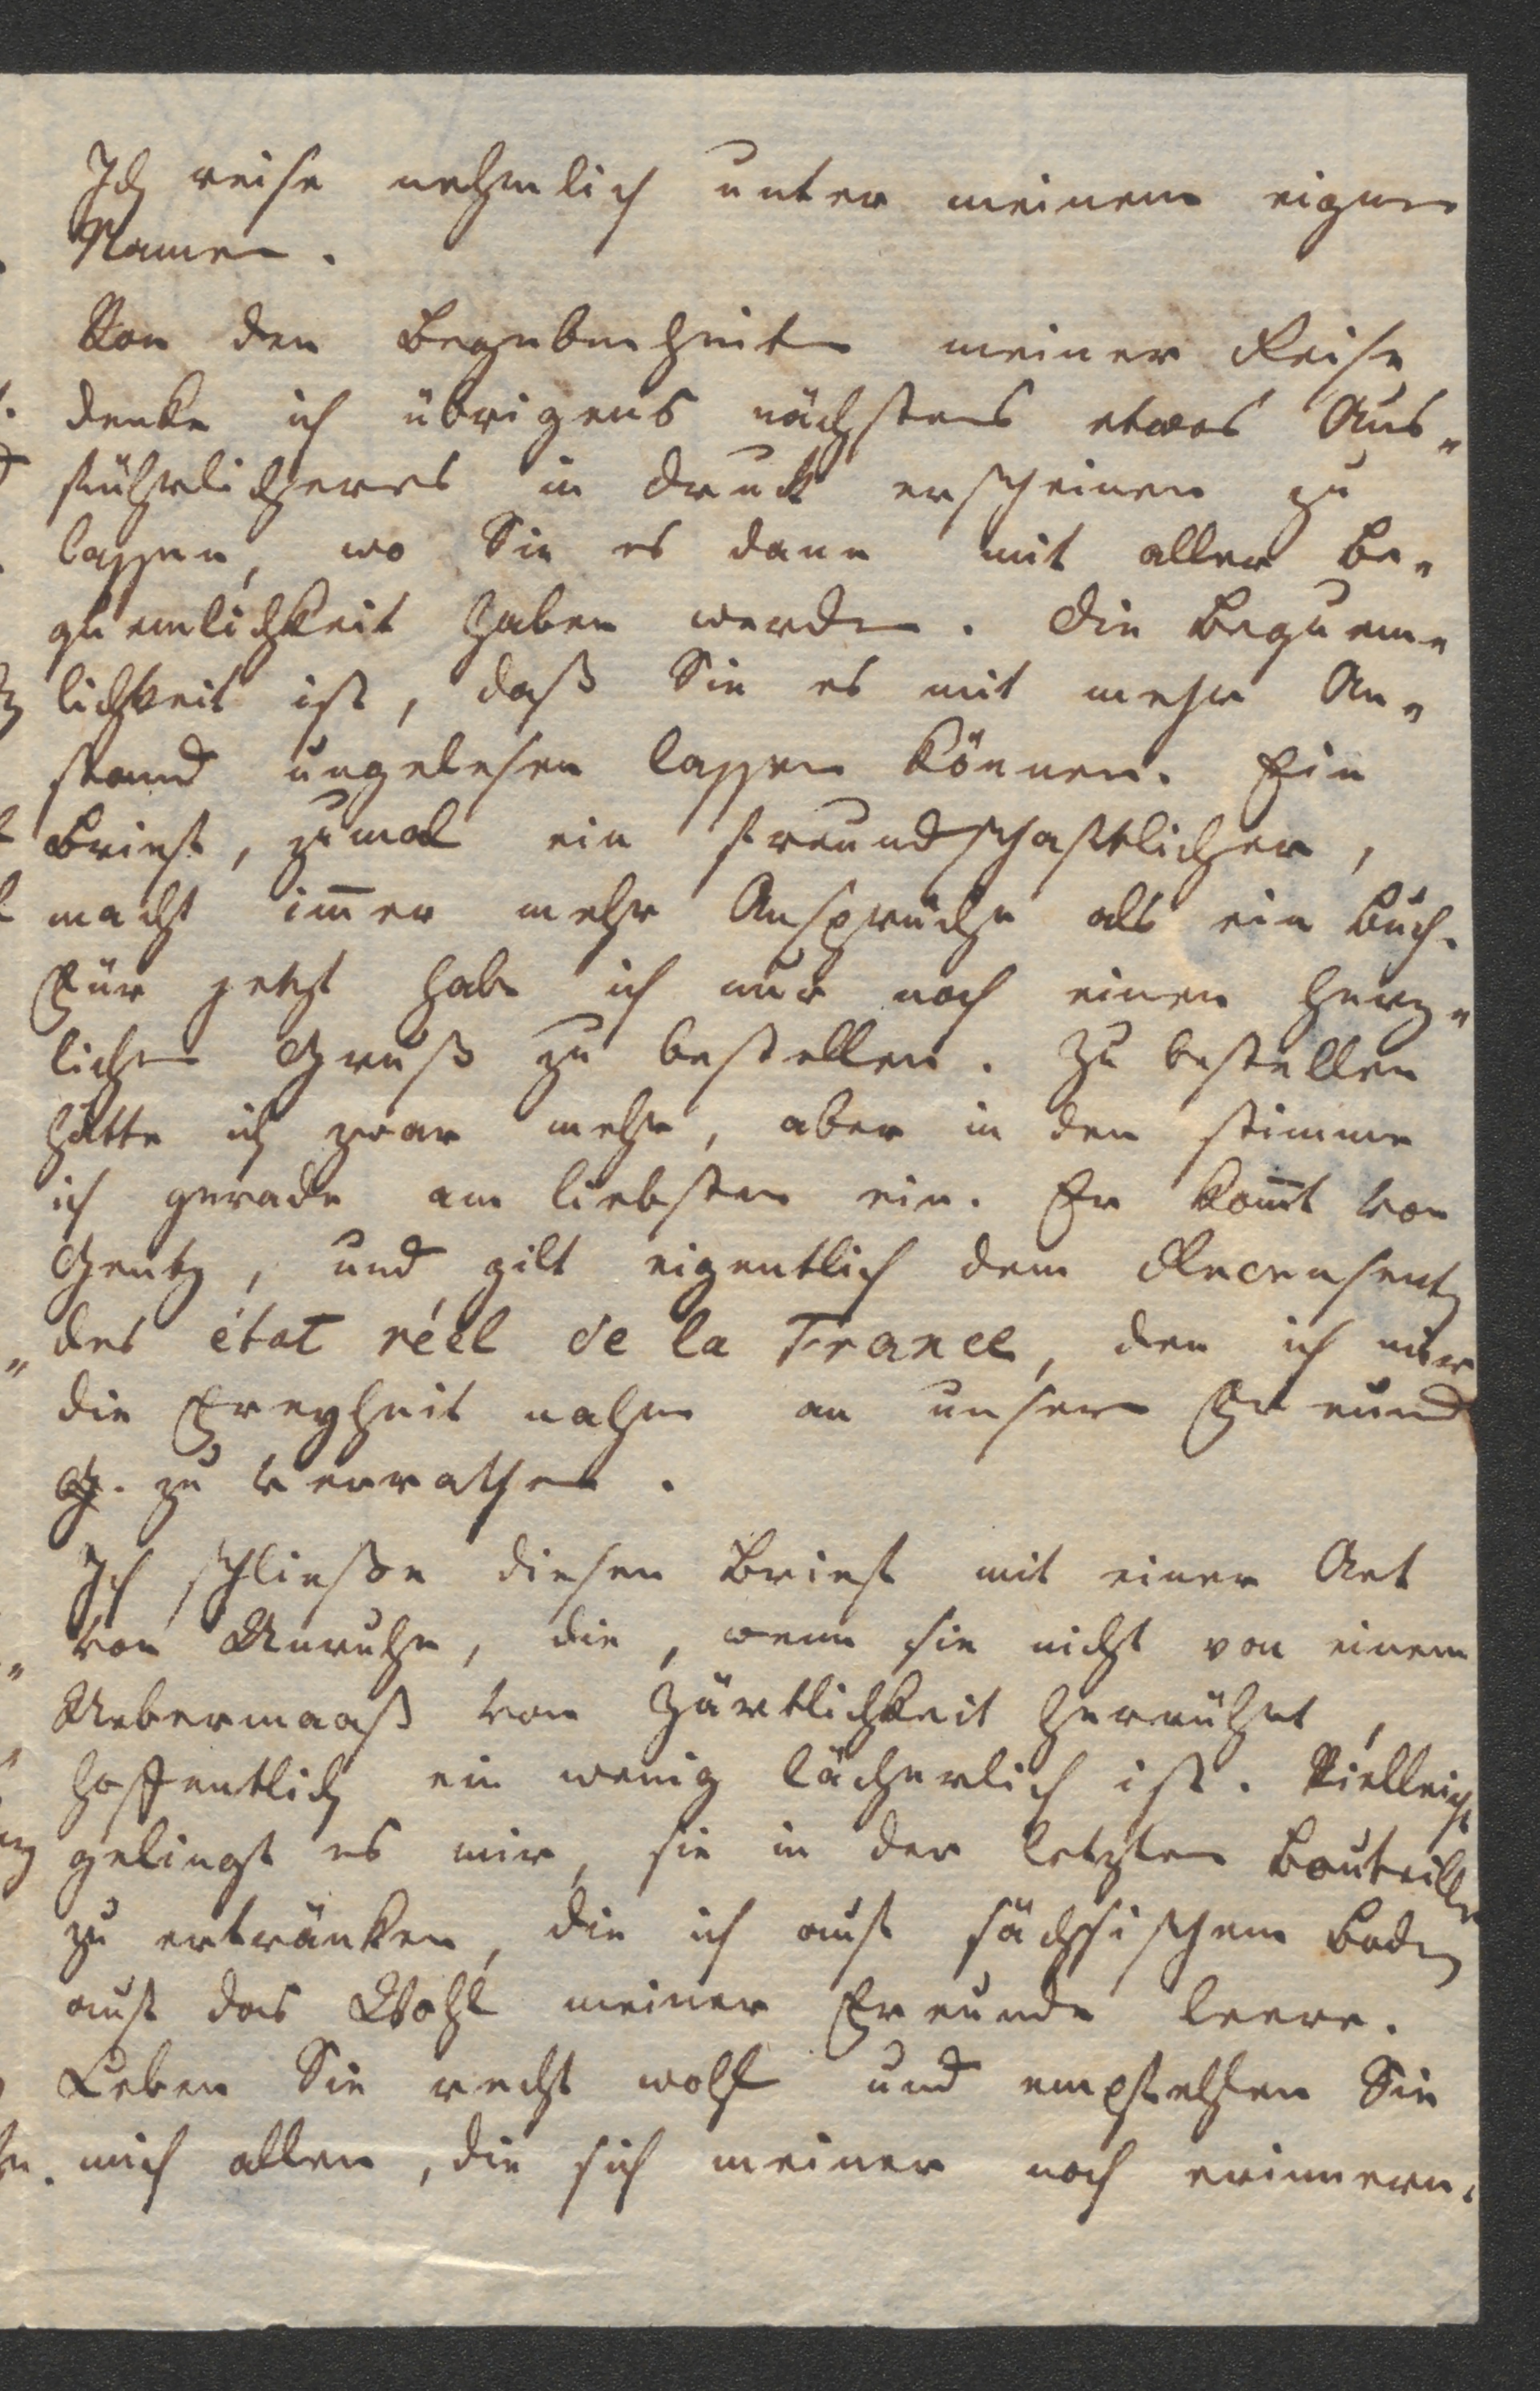 Ich reise nehmlich unter meinem eignen
Namen.
Von den Begebenheiten meiner Reise
denke ich übrigens nächstens etwas Aus„
führlicheres in Druck erscheinen zu
lassen, wo Sie es dann mit aller Be„
quemlichkeit haben werden. Die Bequem„
lichkeit ist, daß Sie es mit mehr An„
stand ungelesen lassen können. Ein
Brief, zumal ein freundschaftlicher,
macht im̅er mehr Ansprüche als ein Buch.
Für jetzt habe ich nur noch einen herz„
lichen Gruß zu bestellen. Zu bestellen
hätte ich zwar mehr, aber in den stimme
ich gerade am liebsten ein. Er kom̅t von
Gentz, und gilt eigentlich dem Recensent
des état réel de la France, den ich mir
die Freyheit nahm an unsern Freund
G. zu verrathen.
Ich schließe diesen Brief mit einer Art
von Unruhe, die, wenn sie nicht von einem
Uebermaaß von Zärtlichkeit herrührt,
hoffentlich ein wenig lächerlich ist. Vielleicht
gelingt es mir, sie in der letzten Bouteille
zu ertränken, die ich auf sächsischem Boden
auf das Wohl meiner Freunde leere.
Leben Sie recht wohl und empfehlen Sie
mich allen, die sich meiner noch erinnern.